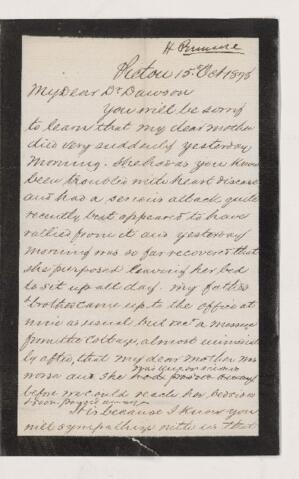 H Primrose
Pictou 15 Oct 1896
My Dear Dr Dawson
You will be sorry
to learn that my dear mother
died very suddenly yesterday
morning. She has as you know
been troubled with heart disease
and had a serious attack quite
recently but appeared to have
rallied from it and yesterday
morning was so far recovered that
she purposed leaving her bed
to sit up all day. My father
& brother came up to the office at
nine as usual but rec'd a message
from the Cottage, almost immediately
after, that my dear mother was
worse and she was unconscious
before we could reach her bedside
& soon passed away
It is because I know you
will sympathise with us that